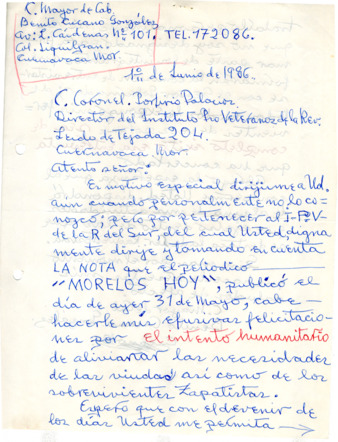 C. Mayor de Cab.
Benito Cicano González
Av: L. Cárdenas Nº 101. TEL. 172086.
Col. Jiquilpan.
Cuernavaca Mor.
1º de Junio de 1986.
C. Coronel. Porfirio Palacios.
Director del Instituto Pro Veteranos de la Rev.
Lerdo de Tejada 204.
Cuernavaca Mor.
Atento señor:
Es motivo especial dirijirme a Ud.
aun cuando personalmente no lo co=
nozco; pero por pertenecer al I-P-V-
de la R. del Sur, del cual Usted, digna
mente dirije y tomando en cuenta
LA NOTA que el periodico
"MORELOS HOY", publicó el
día de ayer 31 de Mayo, cabe —
hacerle mis efusivas felicitacio-
nes por el intento humanitario
de aliviantar las necesidades
de las viudas así como de los
sobrevivientes Zapatistas.
Espero que con el devenir de
los días Usted me permita →